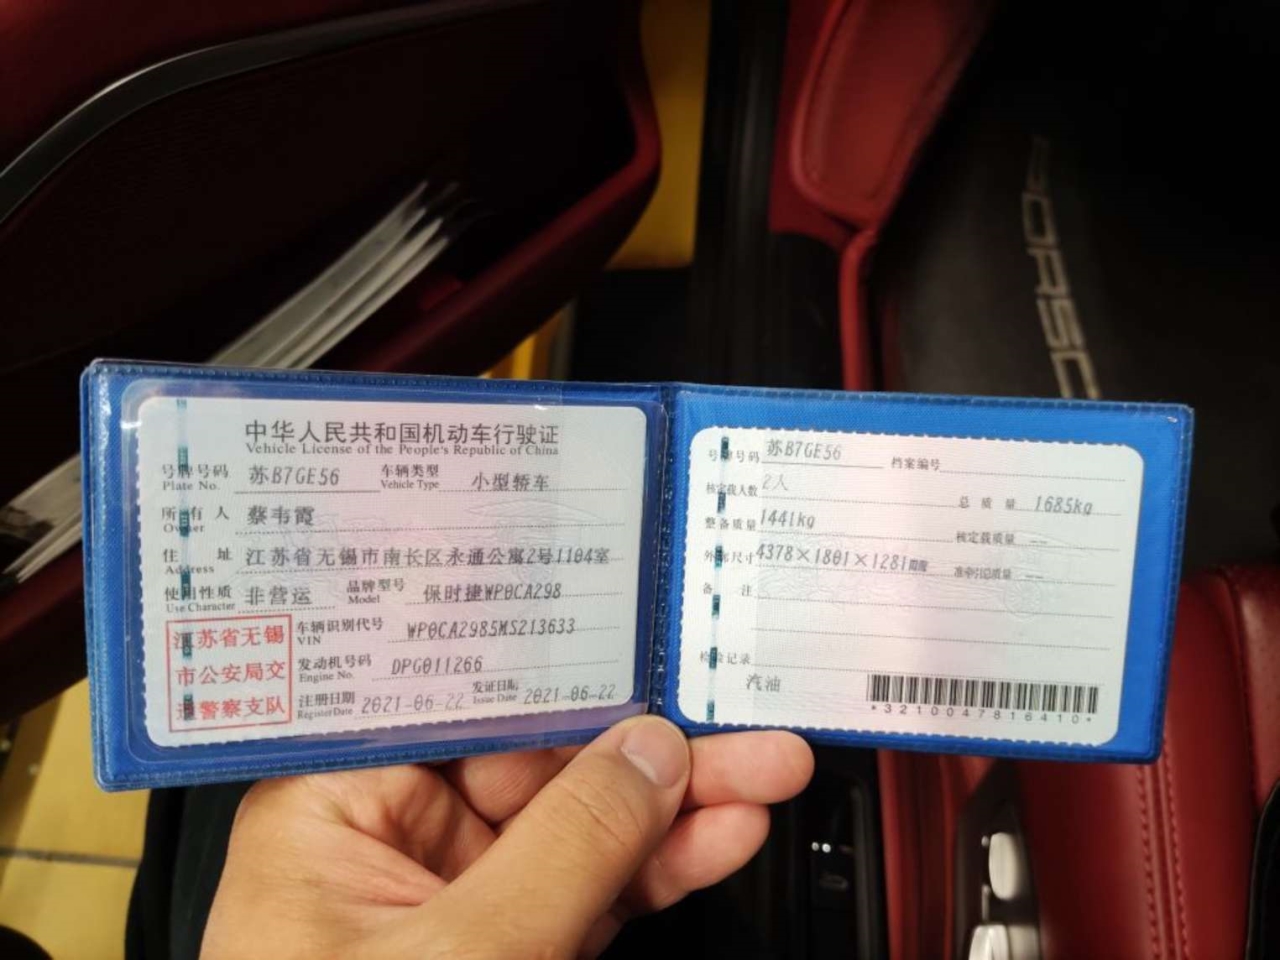 中华人民共和国机动车行驶证
Vehicle License of the People's Republic of China
号牌号码 苏B7GE56 车辆类型 小型轿车
Plate No. Vehicle Type
所有人 蔡韦霞
Owner
住址 江苏省无锡市南长区永通公寓2号1104室
Address
使用性质 非营运 品牌型号 保时捷WP0CA298
Use Character Model
江苏省无锡
市公安局交
通警察支队
车辆识别代号 WP0CA2985MS213633
VIN
发动机号码 DPG011266
Engine No.
注册日期 2021-06-22 发证日期 2021-06-22
Register Date Issue Date
号牌号码 苏B7GE56 档案编号
核定载人数 2人 总质量 1685kg
整备质量 1441kg 核定载质量 --
外廓尺寸 4378×1801×1281mm 准牵引总质量 --
备注
检验记录
汽油
*3210047816410*
PORSC